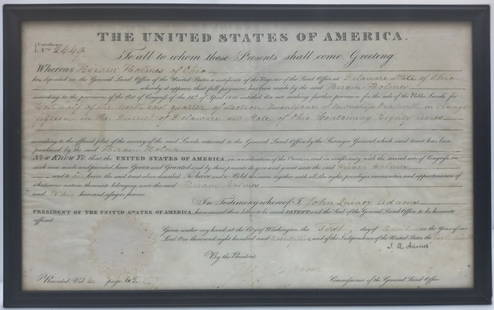 THE UNITED STATES OF AMERICA.
To all to whom these Presents shall come, Greeting:
Whereas Hiram Holmes of Ohio
has deposited in the General Land Office of the United States a certificate of the Register of the Land Office at Delaware State of Ohio
whereby it appears that full payment has been made by the said Hiram Holmes
according to the provisions of the Act of Congress of the 24th April, making further provision for the sale of the Public Lands, for
of the north quarter of Section Township in range
fifteen in the District of Delaware and State of Ohio Containing Eighty acres
according to the official plat of the survey of the said Lands returned to the General Land Office by the Surveyor General, which said tract has been
purchased by the said Hiram Holmes
Now Know Ye, that the UNITED STATES OF AMERICA, in consideration of the Premises, and in conformity with the several acts of Congress, in
such case made and provided, have Given and Granted and by these presents do give and grant unto the said Hiram Holmes
and to heirs, the said tract above described: To have and to Hold the same, together with all the rights, privileges, immunities and appurtenances of
whatsoever nature thereunto belonging unto the said Hiram Holmes
and heirs and assigns forever.
In Testimony whereof I, John Quincy Adams
PRESIDENT OF THE UNITED STATES OF AMERICA, have caused these Letters to be made PATENT, and the Seal of the General Land Office to be hereunto
affixed.
Given under my hand at the City of Washington, the day of in the year of our
Lord one thousand eight hundred and and of the Independence of the United States the
By the President J. Q. Adams
Commissioner of the General Land Office.
Recorded, Vol. page